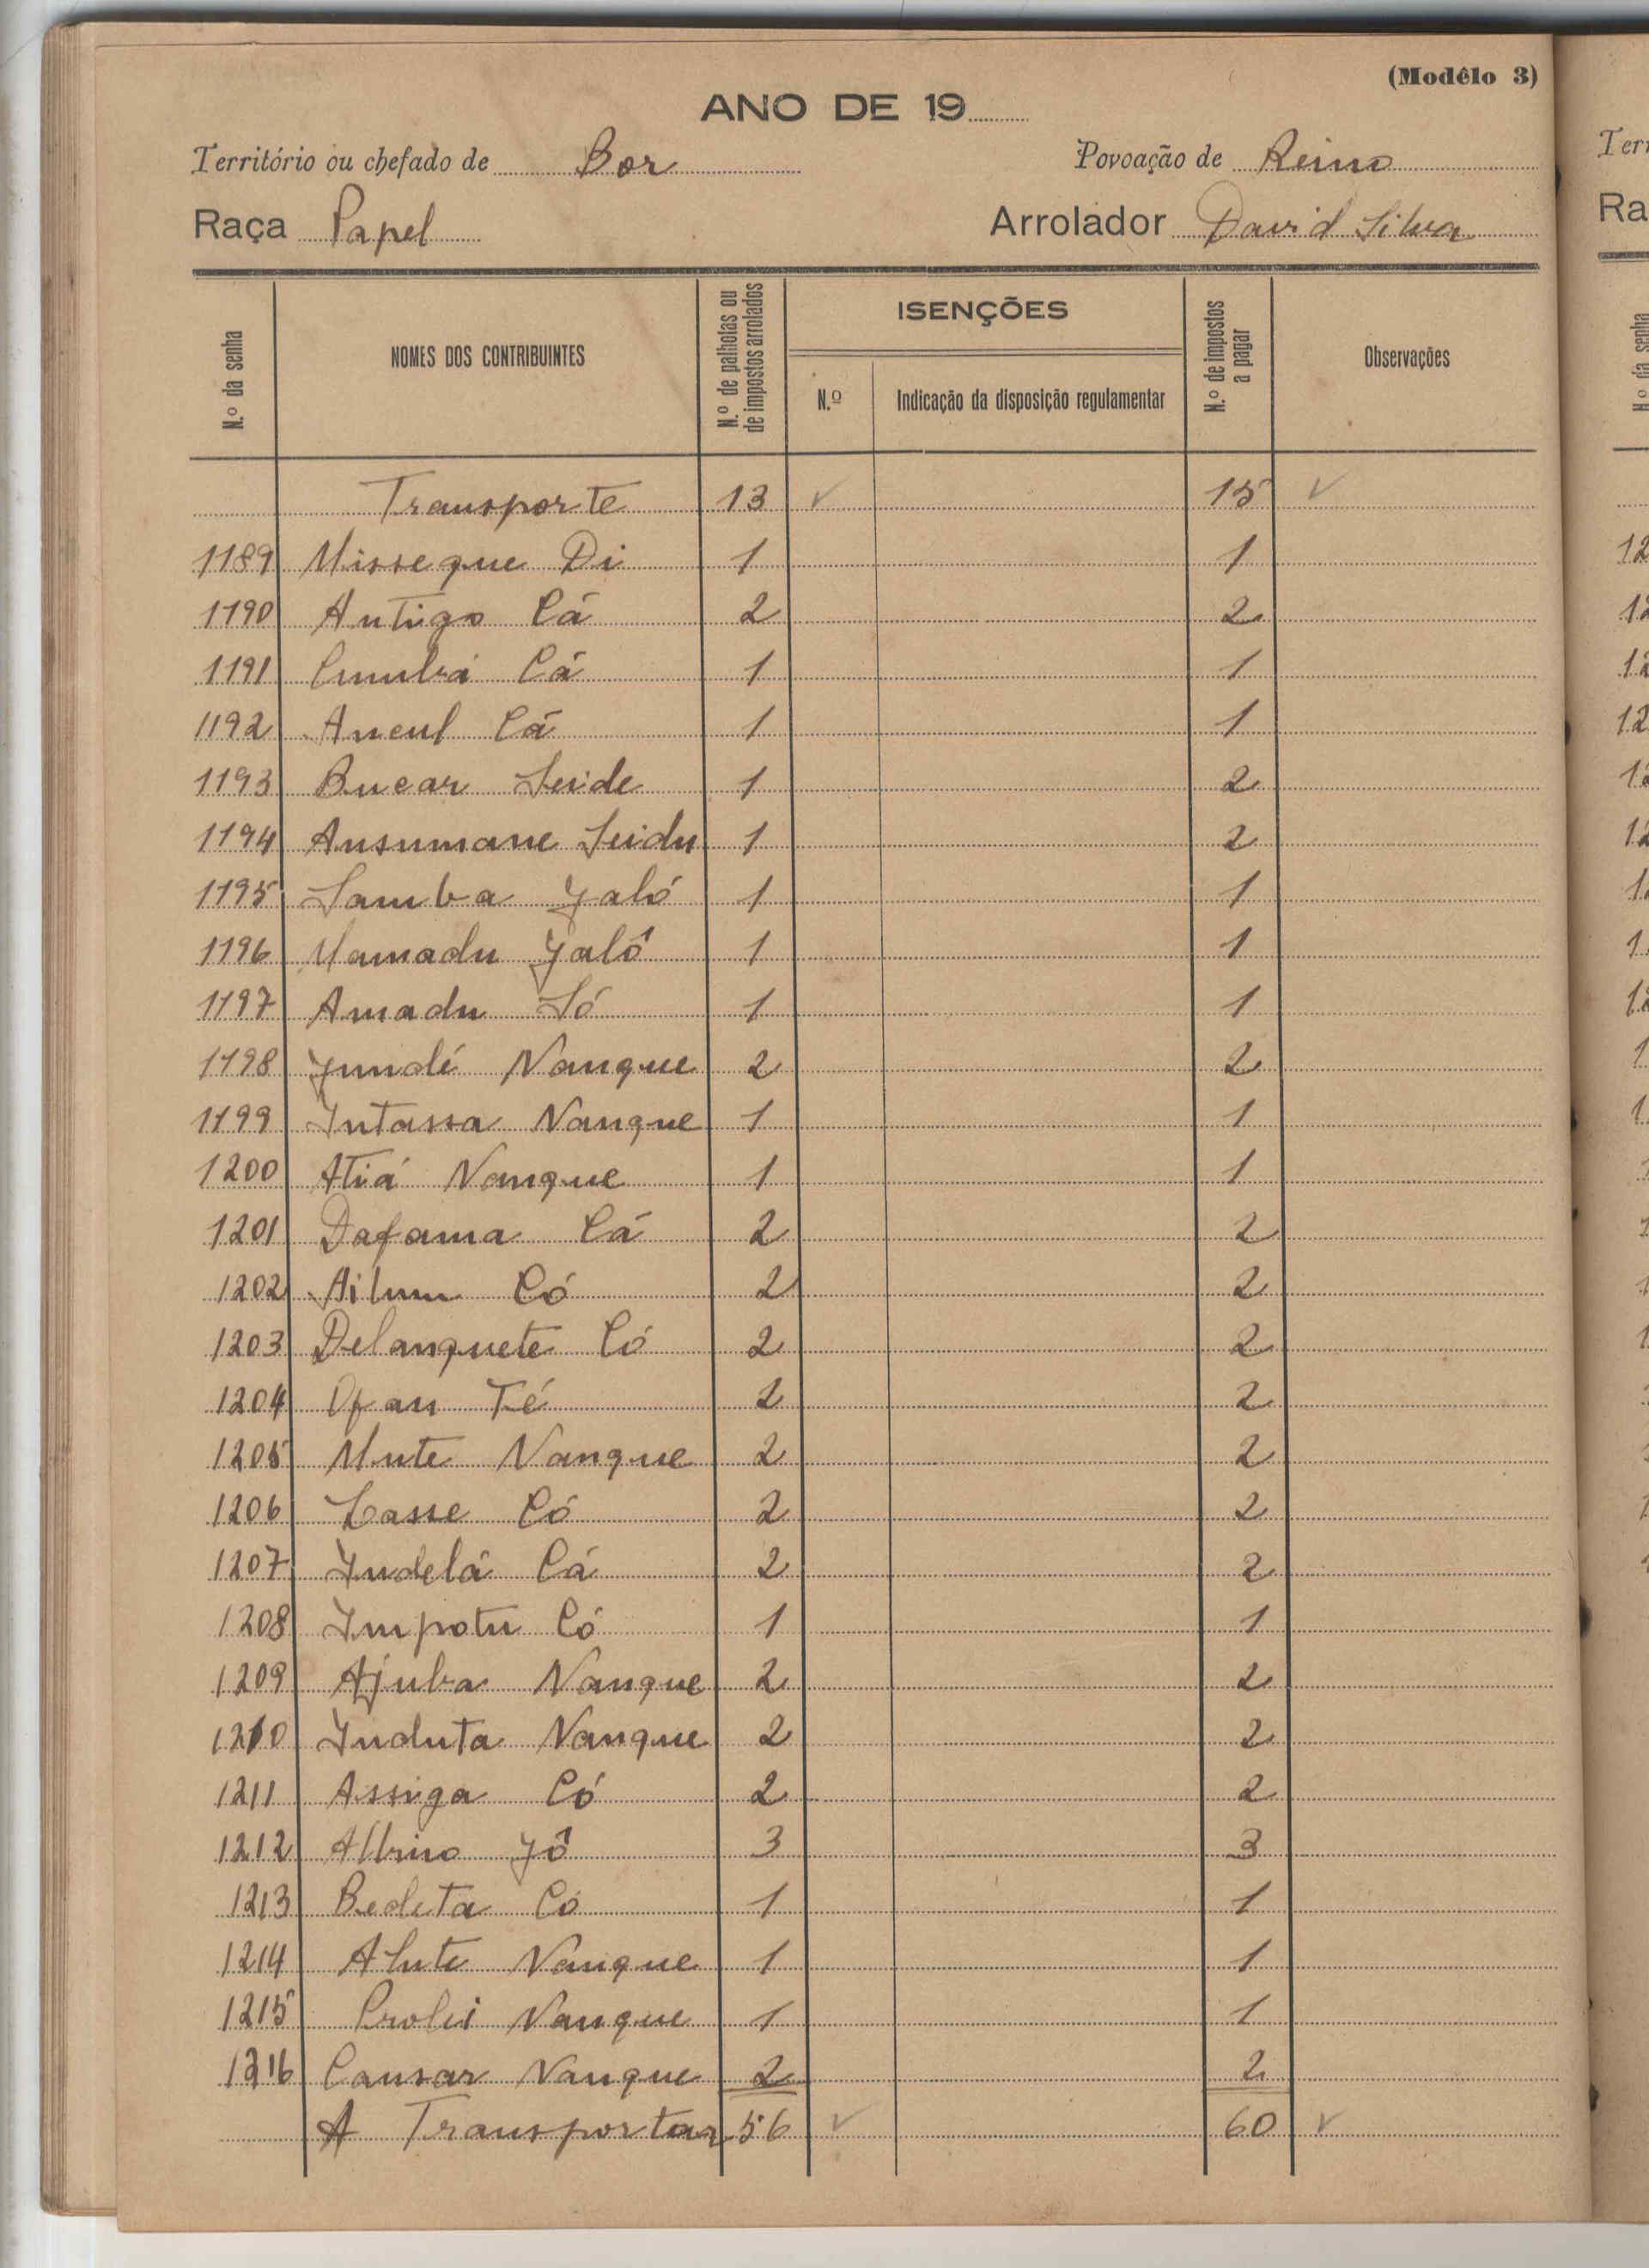 (Modêlo 3)
ANO DE 19
Território ou chefado de Bor Povoação de Reino
Raça Papel Arrolador David Silva
N.º da senha NOMES DOS CONTRIBUINTES N.º de palhotas ou de impostos arrolados ISENÇÕES N.º Indicação da disposição regulamentar N.º de impostos a pagar Observações
Transporte 13 ✓ 15 ✓
1189 Misseque Di 1 1
1190 Antigo Cá 2 2
1191 Cumbá Cá 1 1
1192 Aneul Cá 1 1
1193 Bucar Seide 1 2
1194 Ansumane Seidu 1 2
1195 Samba Jaló 1 1
1196 Mamadu Jaló 1 1
1197 Amadu Só 1 1
1198 Jundé Nanque 2 2
1199 Intassa Nanque 1 1
1200 Atiá Nanque 1 1
1201 Dafama Cá 2 2
1202 Có 2 2
1203 Delanquete Có 2 2
1204 Ofan Té 2 2
1205 Mute Nanque 2 2
1206 Lasse Có 2 2
1207 Indelá Cá 2 2
1208 Impotu Có 1 1
1209 Ajuba Nanque 2 2
1210 Induta Nanque 2 2
1211 Assiga Có 2 2
1212 Albino Jô 3 3
1213 Bedeta Có 1 1
1214 Alute Nanque 1 1
1215 Nanque 1 1
1216 Cansar Nanque 2 2
A Transportar 56 ✓ 60 ✓